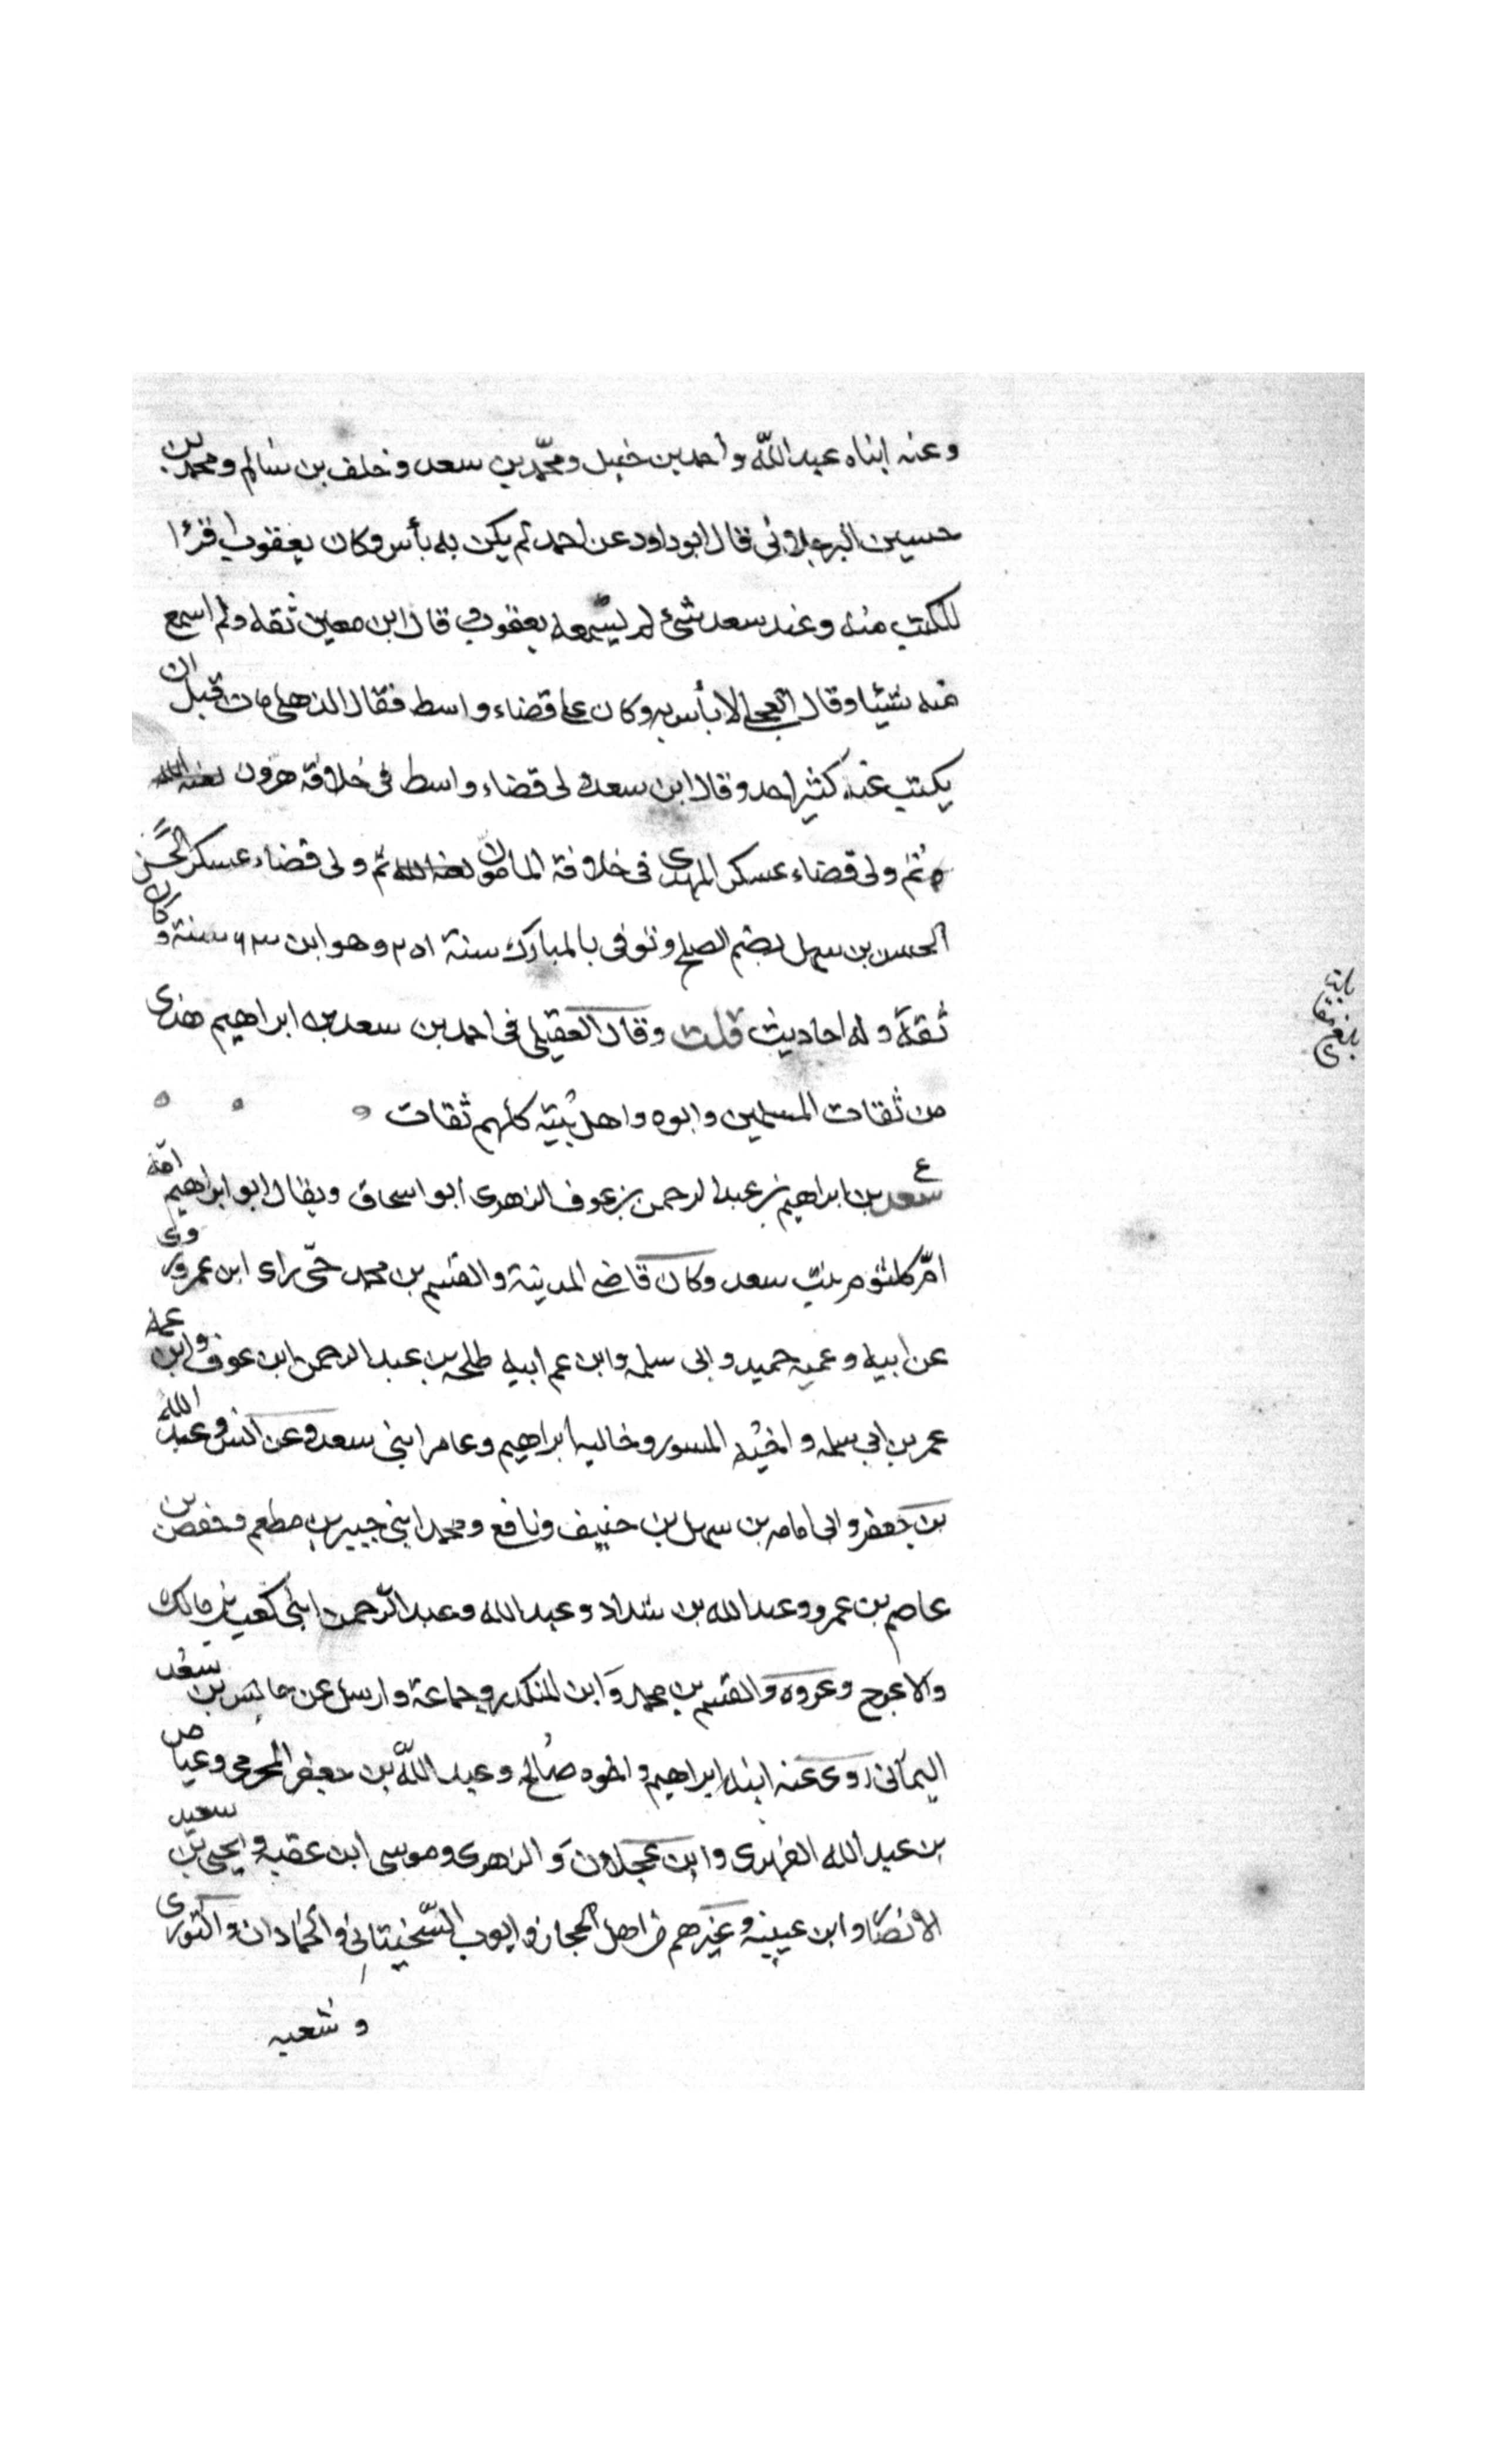 وعنه ابناه عبد الله وأحمد بن حنبل ومحمد بن سعد وخلف بن سالم ومحمد بن
حسين البرجلاني قال ابو داود عن احمد لم يكن به بأس وكان يعقوب اقرا
للكتب منه وعند سعد شئ لم يسمعه يعقوب قال ابن معين ثقه ولم اسمع
منه شيئا وقال العجلي لا بأس به وكان على قضاء واسط فقال الذهلي مات قبل ان
يكتب عنه كثير احد وقال ابن سعد ولى قضاء واسط في خلافة هرون
ثم ولى قضاء عسكر المهدى في خلافة المامون ثم ولى قضاء عسكر الحسن
الحسن بن سهل بفم الصلح وتوفى بالمبارك سنة ٢٥١ وهو ابن ٦٣ سنة وكان
ثقة وله احاديث قلت وقال العقيلي في احمد بن سعد بن ابراهيم هذى
من ثقات المسلمين وابوه واهل بيته كلهم ثقات
ع
سعد بن ابراهيم بن عبد الرحمن بن عوف الزهرى ابو اسحاق ويقال ابو ابراهيم امه
ام كلثوم بنت سعد وكان قاضي المدينة والقسم بن محمد حى راى ابن عمر وروى
عن ابيه وعميه حميد وابى سلمه وابن عم ابيه طلحه بن عبد الرحمن ابن عوف وابن عمه
عمر بن ابي سلمه واخيه المسور وخاليه ابراهيم وعامر ابني سعد وعن انس وعبد الله
بن جعفر وابى امامه بن سهل بن حنيف ونافع ومحمد ابني جبير بن مطعم وحفص بن
عاصم بن عمر وعبد الله بن شداد وعبد الله وعبد الرحمن ابنى كعب بن مالك
والاعرج وعروه والقسم بن محمد وابن المنكدر وجماعة وارسل عن حابس بن سعد
اليمانى روى عنه ابنه ابراهيم واخوه صالح وعبد الله بن جعفر المخرمى وعياض
بن عبد الله الفهرى وابن عجلان والزهرى وموسى ابن عقبه ويحيى بن سعيد
الانصارى وابن عيينه وغيرهم من اهل الحجاز وايوب السختيانى والحمادان والثورى
وشعبه